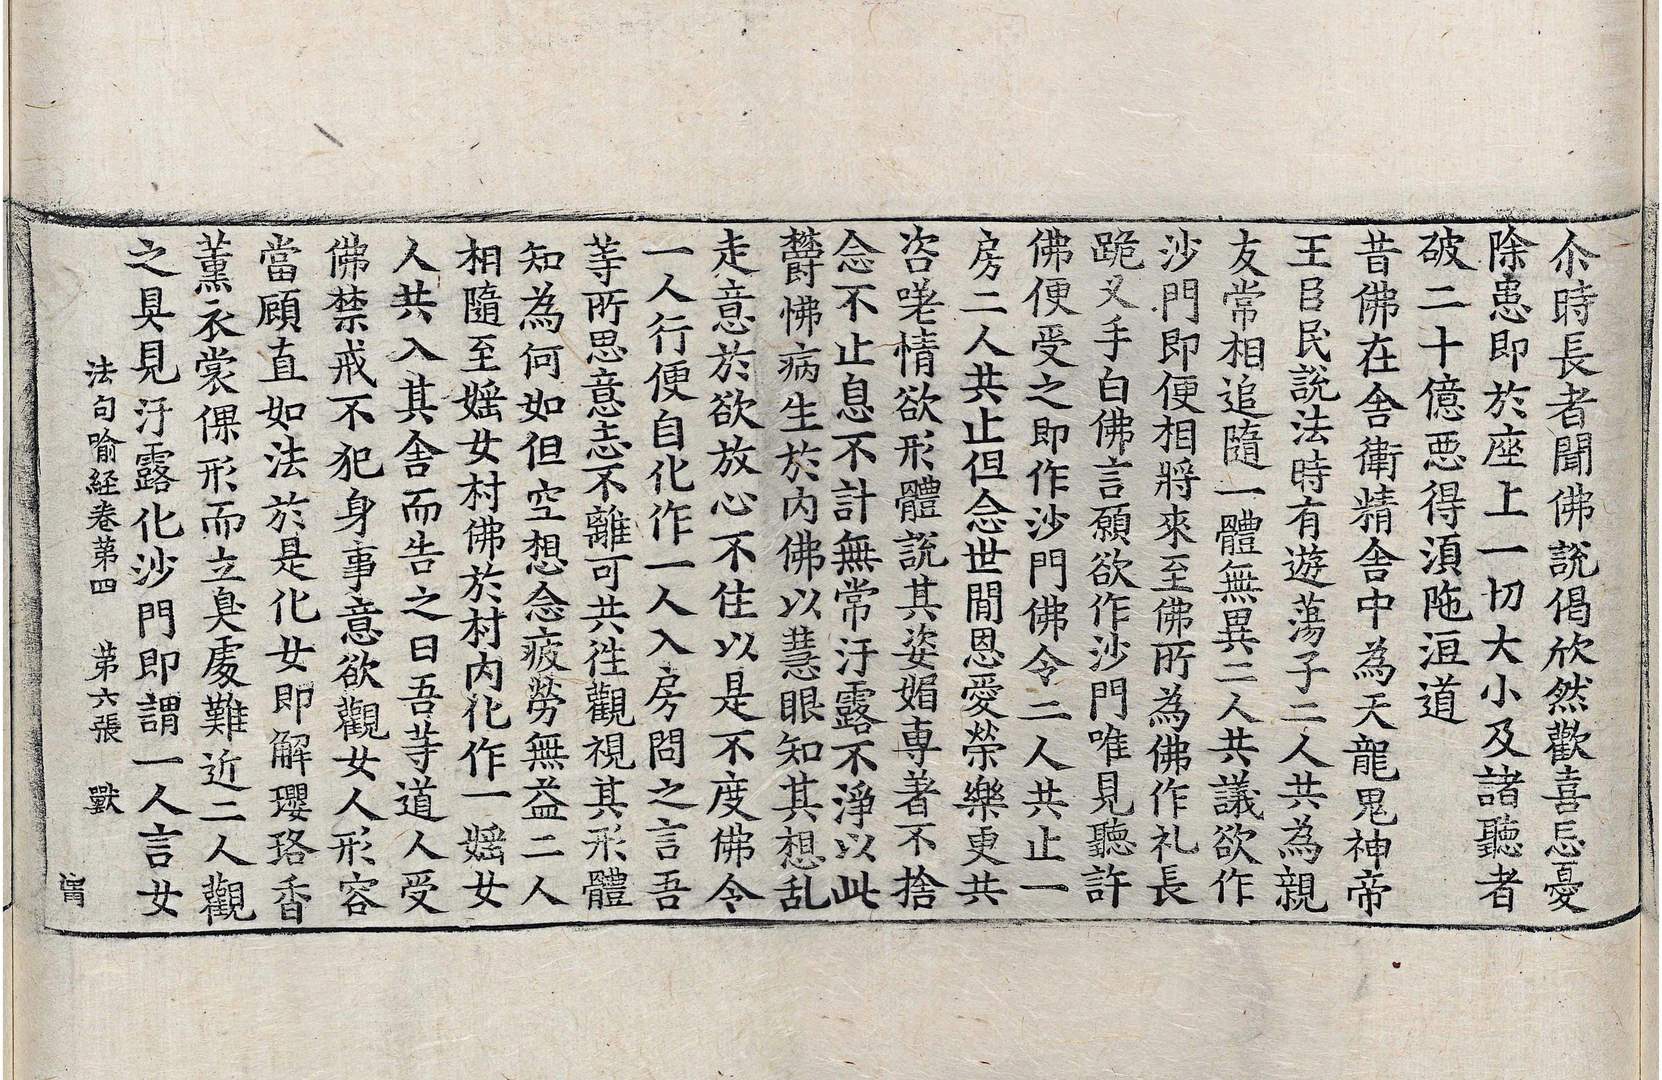 尒時長者聞佛說偈欣然歡喜忘憂
除患即於座上一切大小及諸聽者
破二十億惡得湏陁洹道
昔佛在舍衛精舍中為天龍鬼神帝
王臣民說法時有遊蕩子二人共為親
友常相追隨一體無異二人共議欲作
沙門即便相將來至佛所為佛作礼長
跪叉手白佛言願欲作沙門唯見聽許
佛便受之即作沙門佛令二人共止一
房二人共止但念世閒恩愛榮樂更共
咨嗟情欲形體說其姿媚專著不捨
念不止息不計無常汙露不淨以此
欝怫病生於內佛以慧眼知其想乱
走意於欲放心不住以是不度佛令
一人行便自化作一人入房問之言吾
䓁所思意志不離可共徃觀視其形體
知為何如但空想念疲勞無益二人
相隨至婬女村佛於村內化作一婬女
人共入其舍而告之曰吾䓁道人受
佛禁戒不犯身事意欲觀女人形容
當顧直如法於是化女即解瓔珞香
薰衣裳倮形而立臭處難近二人觀
之具見汙露化沙門即謂一人言女
法句喻經卷苐四 苐六張 獸